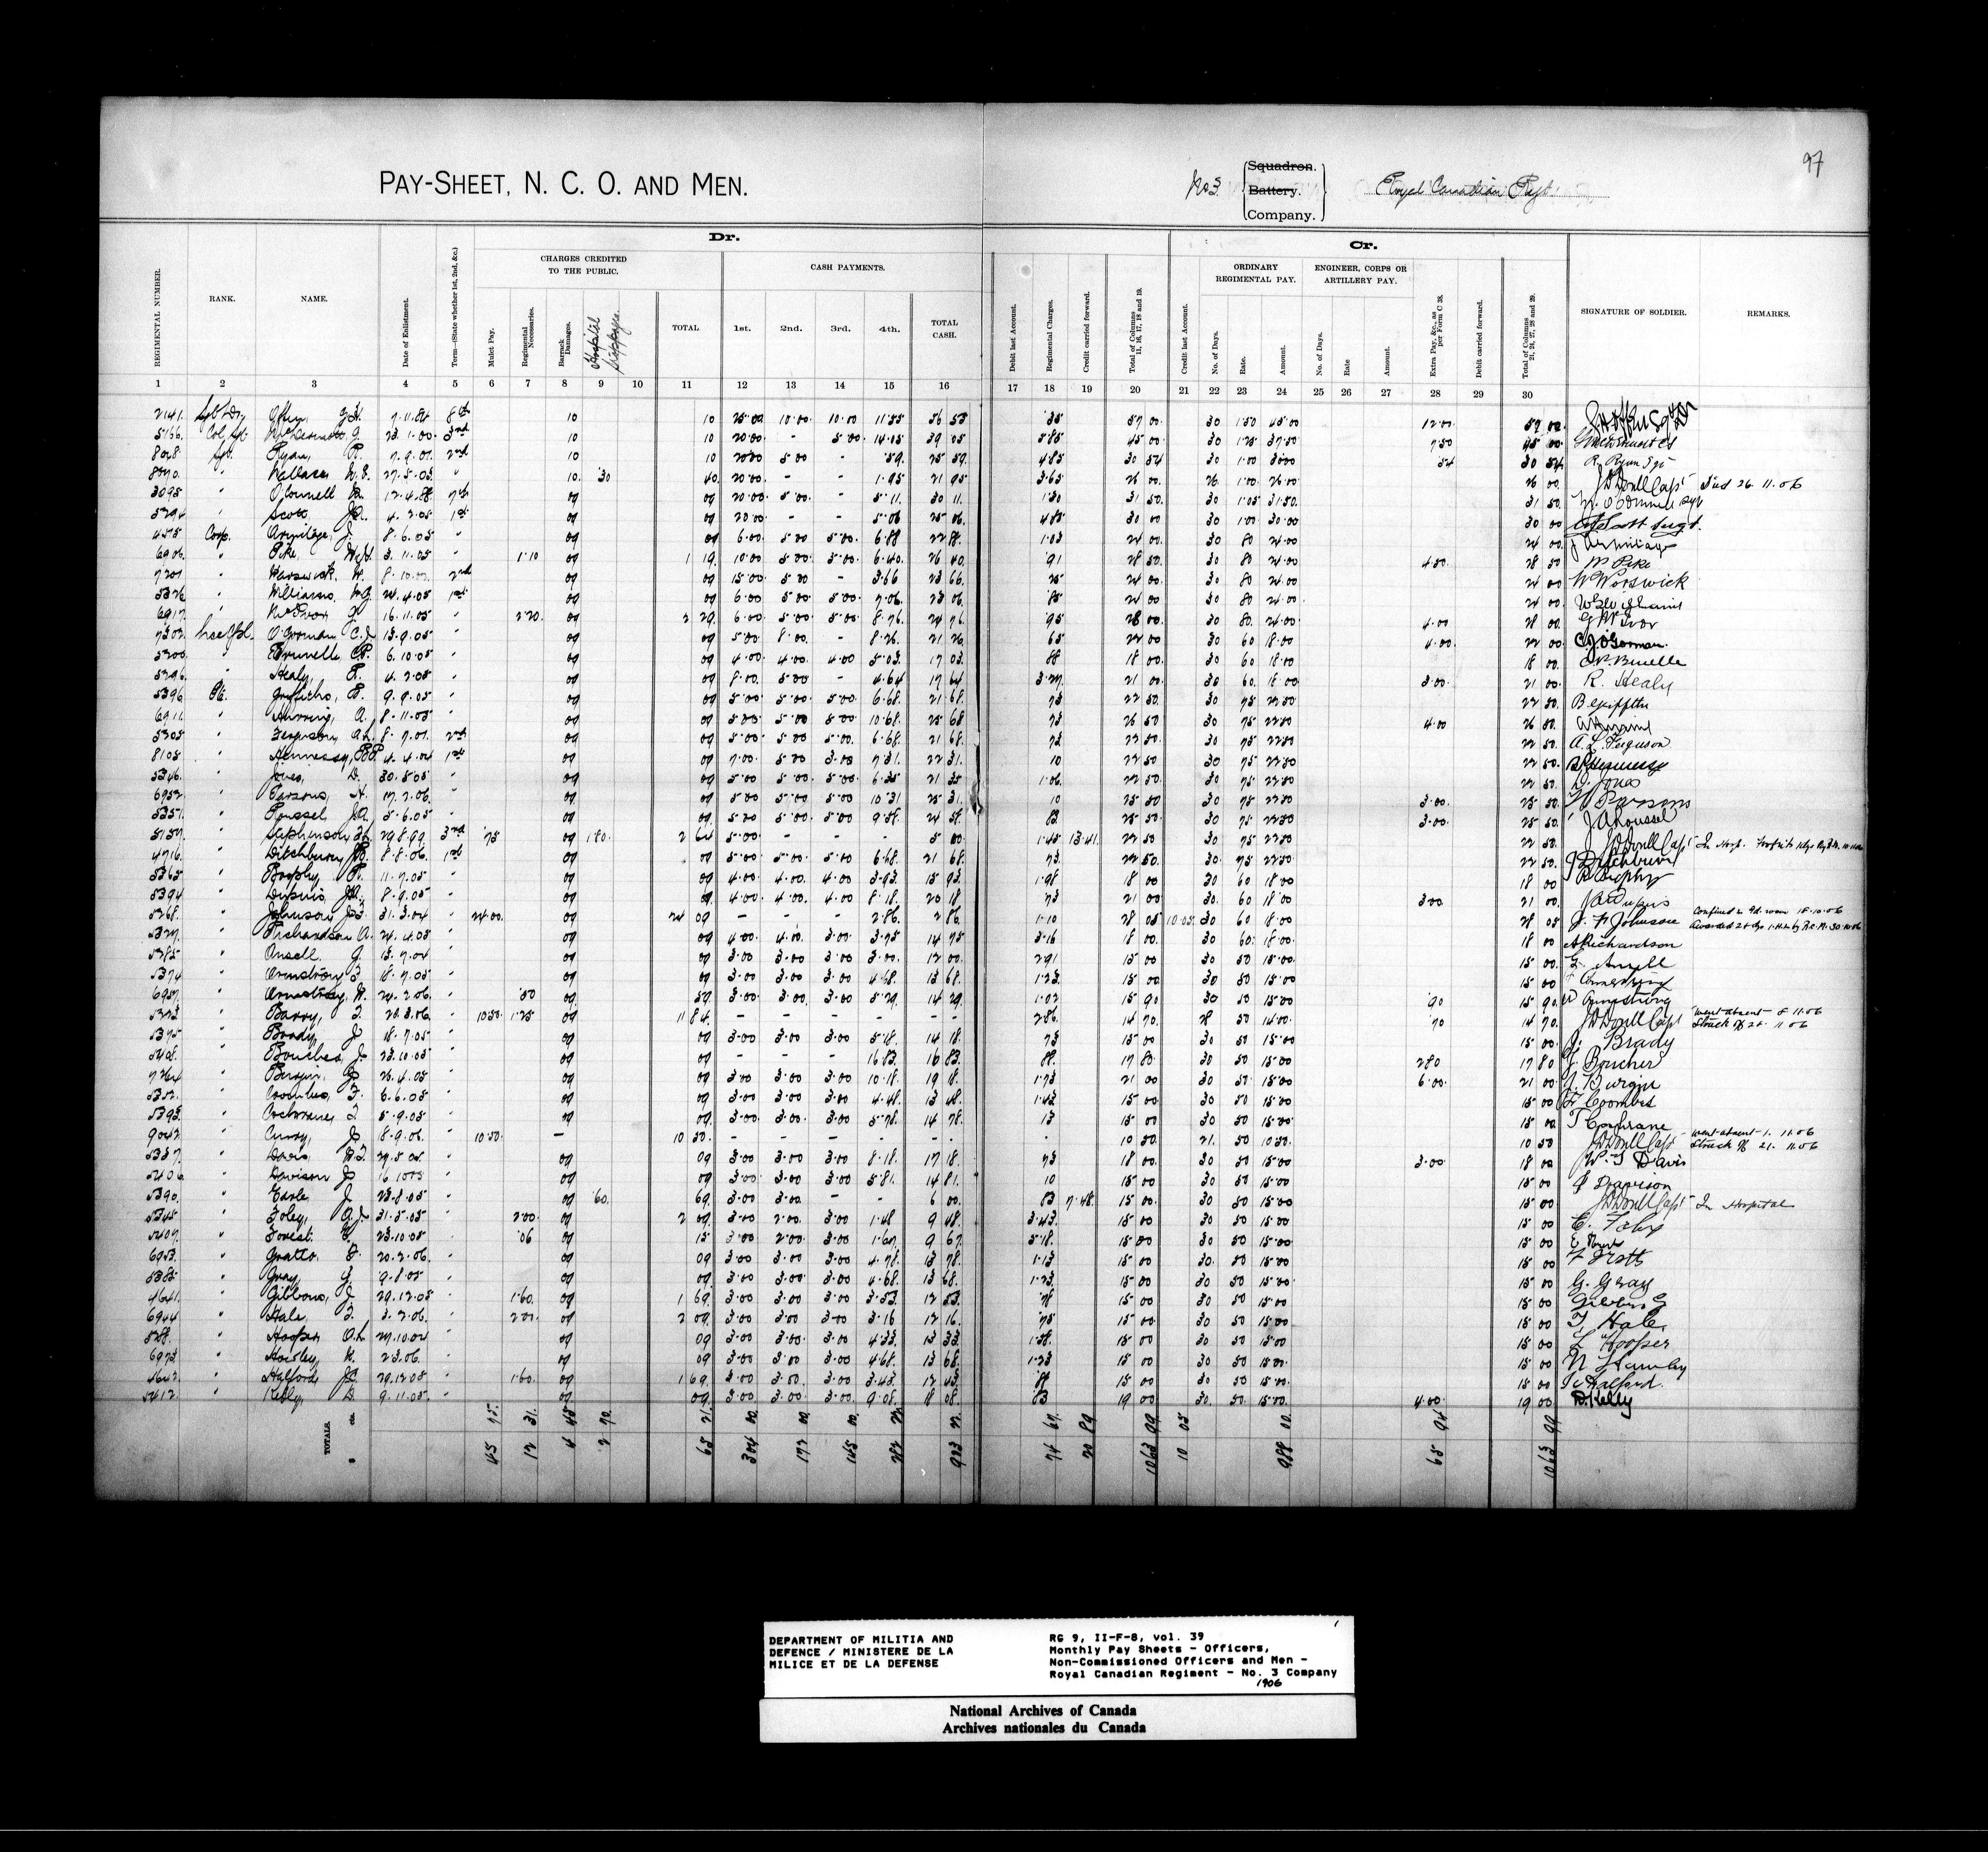 97
PAY-SHEET, N. C. O. AND MEN.
No 3 Squadron. Battery. Company. Royal Canadian Regt.
Dr.
Cr.
CHARGES CREDITED TO THE PUBLIC.
CASH PAYMENTS.
ORDINARY REGIMENTAL PAY.
ENGINEER, CORPS OR ARTILLERY PAY.
REGIMENTAL NUMBER. RANK. NAME. Date of Enlistment. Term—(State whether 1st, 2nd, &c.) Mulct Pay. Regimental Necessaries. Barrack Damages. Hospital Stoppages. TOTAL 1st. 2nd. 3rd. 4th. TOTAL CASH. Debit last Account. Regimental Charges. Credit carried forward. Total of Columns 11, 16, 17, 18 and 19. Credit last Account. No. of Days. Rate. Amount. No. of Days. Rate Amount. Extra Pay, &c., as per Form C 38. Debit carried forward. Total of Columns 21, 24, 27, 28 and 29. SIGNATURE OF SOLDIER. REMARKS.
1 2 3 4 5 6 7 8 9 10 11 12 13 14 15 16 17 18 19 20 21 22 23 24 25 26 27 28 29 30
2141. 7.11.84 8th 10 10 25.00 10.00 10.00 11.55 56 55 .35 57 00 30 1.50 45.00 12.00 57 00
5166. Col Sgt McDermott G. 23.1.00 3rd 10 10 20.00 - 5.00 14.05 39 05 5.85 45 00 30 1.25 37.50 7.50 45 00
Sgt Ryan, R. 7.9.01 2nd 10 10 20.00 5.00 - .59 25 59 4.85 30 54 30 1.00 30.00 54 30 54 R. Ryan Sgt
" Wallace, W.S. 27.5.03 " 10 30 40 20.00 - - 1.95 21 95 3.65 26 00 26 1.00 26.00 26 00 Died 26.11.06
3095 " O'Connell 12.4.88 7th 09 09 20.00 5.00 - 5.11 30 11 1.30 31 50 30 1.05 31.50 31 50
5294 " Scott, 4.2.05 1st 09 09 20.00 - - 5.06 25 06 4.85 30 00 30 1.00 30.00 30 00
455 Corp. Armitage, J. 8.6.05 " 09 09 6.00 5.00 5.00 6.88 22 88 1.03 24 00 30 80 24.00 24 00 J Armitage
6906 " Pike, W.H. 3.11.05 " 1.10 09 1 19 10.00 5.00 5.00 6.40 26 40 .91 28 50 30 80 24.00 4.50 28 50 W Pike
" Warswick, W. 8.10.02 2nd 09 09 15.00 5.00 - 3.66 23 66 25 24 00 30 80 24.00 24 00 W Worswick
5326 " Williams, W.G. 24.4.05 1st 09 09 6.00 5.00 5.00 7.06 23 06 .85 24 00 30 80 24.00 24 00
6917 " McIvor G 16.11.05 " 2.20 09 2 29 6.00 5.00 5.00 8.76 24 76 .95 28 00 30 80 24.00 4.00 28 00 G McIvor
7302 Lce Cpl. O'Gorman C.J. 13.9.05 " 09 09 5.00 8.00 - 8.26 21 26 65 22 00 30 60 18.00 4.00 22 00 C.J. O'Gorman
5200 " Brunelle C.P. 6.10.05 " 09 09 4.00 4.00 4.00 5.03 17 03 88 18 00 30 60 18.00 18 00
5296 " Healy, R. 4.2.05 " 09 09 8.00 5.00 - 4.64 17 64 3.27 21 00 30 60 18.00 3.00 21 00 R. Healy
5396 Pte. Griffiths, B. 9.9.05 " 09 09 5.00 5.00 5.00 6.68 21 68 73 22 50 30 75 22.50 22 50
6911 " A. 8.11.05 " 09 09 5.00 5.00 5.00 10.68 25 68 73 26 50 30 75 22.50 4.00 26 50
5305 " Ferguson, A.L. 8.7.01 2nd 09 09 5.00 5.00 5.00 6.68 21 68 73 22 50 30 75 22.50 22 50 A.L. Ferguson
8105 " Hennessy, B.P. 4.4.04 1st 09 09 7.00 5.00 3.00 7.31 22 31 10 22 50 30 75 22.50 22 50
5346 " Jones, D. 30.5.05 " 09 09 5.00 5.00 5.00 6.35 21 35 1.06 22 50 30 75 22.50 22 50 D Jones
6952 " Parsons, H. 17.2.06 " 09 09 5.00 5.00 5.00 10.31 25 31 10 25 50 30 75 22.50 3.00 25 50 H Parsons
5351 " Roussel J.A. 5.6.05 " 09 09 5.00 5.00 5.00 9.58 24 58 83 25 50 30 75 22.50 3.00 25 50 J A Roussel
5137 " Stephenson 29.8.99 3rd .75 09 1.80 2 64 5.00 - - - 5 00 1.45 13.41 22 50 30 75 22.50 22 50 In Hosp.
4716 " Ditchburn, J.B. 8.8.06 1st 09 09 5.00 5.00 5.00 6.68 21 68 73 22 50 30 75 22.50 22 50
5365 " Brophy R. 11.7.05 " 09 09 4.00 4.00 4.00 3.93 15 93 1.98 18 00 30 60 18.00 18 00 R Brophy
5394 " Dupuis J.A. 8.9.05 " 09 09 4.00 4.00 4.00 8.18 20 18 73 21 00 30 60 18.00 3.00 21 00 J A Dupuis
5268 " Johnson J.F. 31.3.04 " 24.00 09 24 09 - - - 2.86 2 86 1.10 28 05 10.05 30 60 18.00 28 05 J. F Johnson Confined in Gd. room 18.10.06
5327 " Richardson A. 24.4.05 " 09 09 4.00 4.00 3.00 3.75 14 75 3.16 18 00 30 60 18.00 18 00 A Richardson
5285 " Ansell G. 13.7.04 " 09 09 3.00 3.00 3.00 3.00 12 00 2.91 15 00 30 50 15.00 15 00
5374 " Armstrong F. 18.7.05 " 09 09 3.00 3.00 3.00 4.68 13 68 1.23 15 00 30 50 15.00 15 00
6957 " Armstrong, W. 24.2.06 " .50 09 59 3.00 3.00 3.00 5.29 14 29 1.02 15 90 30 50 15.00 90 15 90 W Armstrong
5323 " Barry, T. 23.3.06 " 10.50 1.25 09 11 84 - - - - - 2.86 14 70 28 50 14.00 70 14 70 went absent 8.11.06 Struck off 28.11.06
5375 " Brady, J. 18.7.05 " 09 09 3.00 3.00 3.00 5.18 14 18 73 15 00 30 50 15.00 15 00 J. Brady
5408 " Boucher, J. 23.10.05 " 09 09 - - - 16.83 16 83 88 17 80 30 50 15.00 2.80 17 80 J. Boucher
7264 " Burgin, J. 25.4.05 " 09 09 3.00 3.00 3.00 10.18 19 18 1.73 21 00 30 50 15.00 6.00 21 00 J. Burgin
5352 " Coombes, F. 6.6.05 " 09 09 3.00 3.00 3.00 4.48 13 48 1.43 15 00 30 50 15.00 15 00 F. Coombes
5393 " Cochrane, T 5.9.05 " 09 09 3.00 3.00 3.00 5.78 14 78 13 15 00 30 50 15.00 15 00 T Cochrane
9042 " Curry, J. 18.9.06 " 10.50 - 10 50 - - - - - - 10 50 21 50 10.50 10 50 went absent 1.11.06 Struck off 21.11.06
5337 " Davis, W.T. 29.5.05 " 09 09 3.00 3.00 3.00 8.18 17 18 73 18 00 30 50 15.00 3.00 18 00 W. T Davis
5406 " Davison J. " 09 09 3.00 3.00 3.00 5.81 14 81 10 15 00 30 50 15.00 15 00 J Davison
5390 " Earle, J. 23.8.05 " 09 .60 69 3.00 3.00 - - 6 00 83 7.48 15 00 30 50 15.00 15 00 In Hospital
5345 " Foley, 31.5.05 " 2.00 09 2 09 3.00 2.00 3.00 1.48 9 48 3.43 15 00 30 50 15.00 15 00 Foley
5407 " Forest, E. 23.10.05 " .06 09 15 3.00 2.00 3.00 1.67 9 67 5.18 15 00 30 50 15.00 15 00
6953 " Gratto, F. 20.2.06 " 09 09 3.00 3.00 3.00 4.78 13 78 1.13 15 00 30 50 15.00 15 00
5385 " Gray, G. 9.8.05 " 09 09 3.00 3.00 3.00 4.68 13 68 1.23 15 00 30 50 15.00 15 00 G. Gray
4641 " Gibbons, J 29.12.05 " 1.60 09 1 69 3.00 3.00 3.00 3.53 12 53 78 15 00 30 50 15.00 15 00
6944 " Hale, T. 3.2.06 " 2.00 09 2 09 3.00 3.00 3.00 3.16 12 16 75 15 00 30 50 15.00 15 00 T. Hale
528 " Hooper, 27.10.04 " 09 09 3.00 3.00 3.00 4.33 13 33 1.58 15 00 30 50 15.00 15 00 Hooper
6973 " N. 2.3.06 " 09 09 3.00 3.00 3.00 4.68 13 68 1.23 15 00 30 50 15.00 15 00
4642 " Halford, J.C. 29.12.05 " 1.60 09 1 69 3.00 3.00 3.00 3.43 12 43 88 15 00 30 50 15.00 15 00 Halford
5412 " Kelly, D. 9.11.05 " 09 09 3.00 3.00 3.00 9.08 18 08 83 19 00 30 50 15.00 4.00 19 00 D. Kelly
TOTALS. 45 75 12 31 4 45 2 70 65 21 304 00 172 00 145 00 74 67 20 89 1063 99 10 05 988 00 65 94 1063 99
DEPARTMENT OF MILITIA AND
DEFENCE / MINISTERE DE LA
MILICE ET DE LA DEFENSE
RG 9, II-F-8, vol. 39
Monthly Pay Sheets - Officers,
Non-Commissioned Officers and Men -
Royal Canadian Regiment - No. 3 Company
1906
National Archives of Canada
Archives nationales du Canada